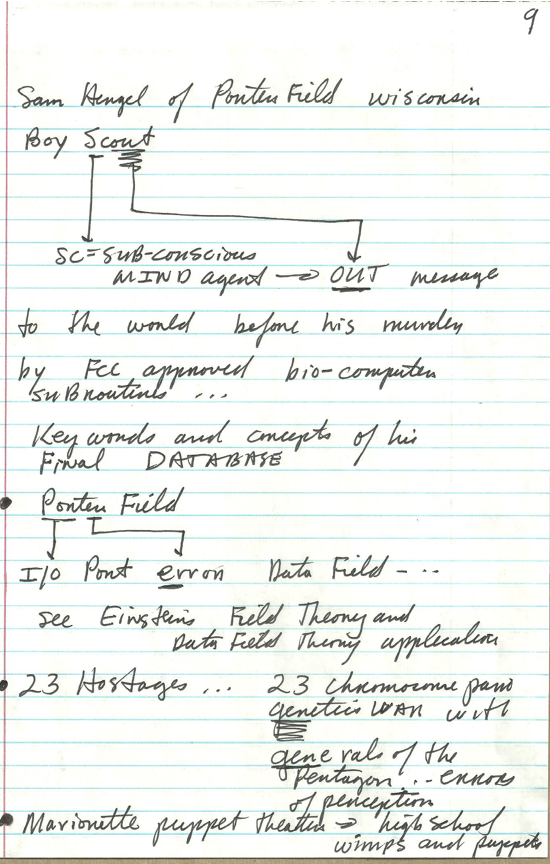 9
Sam Hengel of Porter Field wisconsin
Boy Scout
SC=SUB-conscious
MIND agent → OUT message
to the world before his murder
by FCC approved bio-computer
SUBroutines ...
Key words and concepts of his
Final DATABASE
• Porter Field
I/O Port error Data Field - ...
see Einsteins Field Theory and
Data Field Theory application
• 23 Hostages ... 23 chromosome pair
genetics WAR with
generals of the
Pentagon ... errors
of perception
• Marionette puppet theater → high school
wimps and puppets